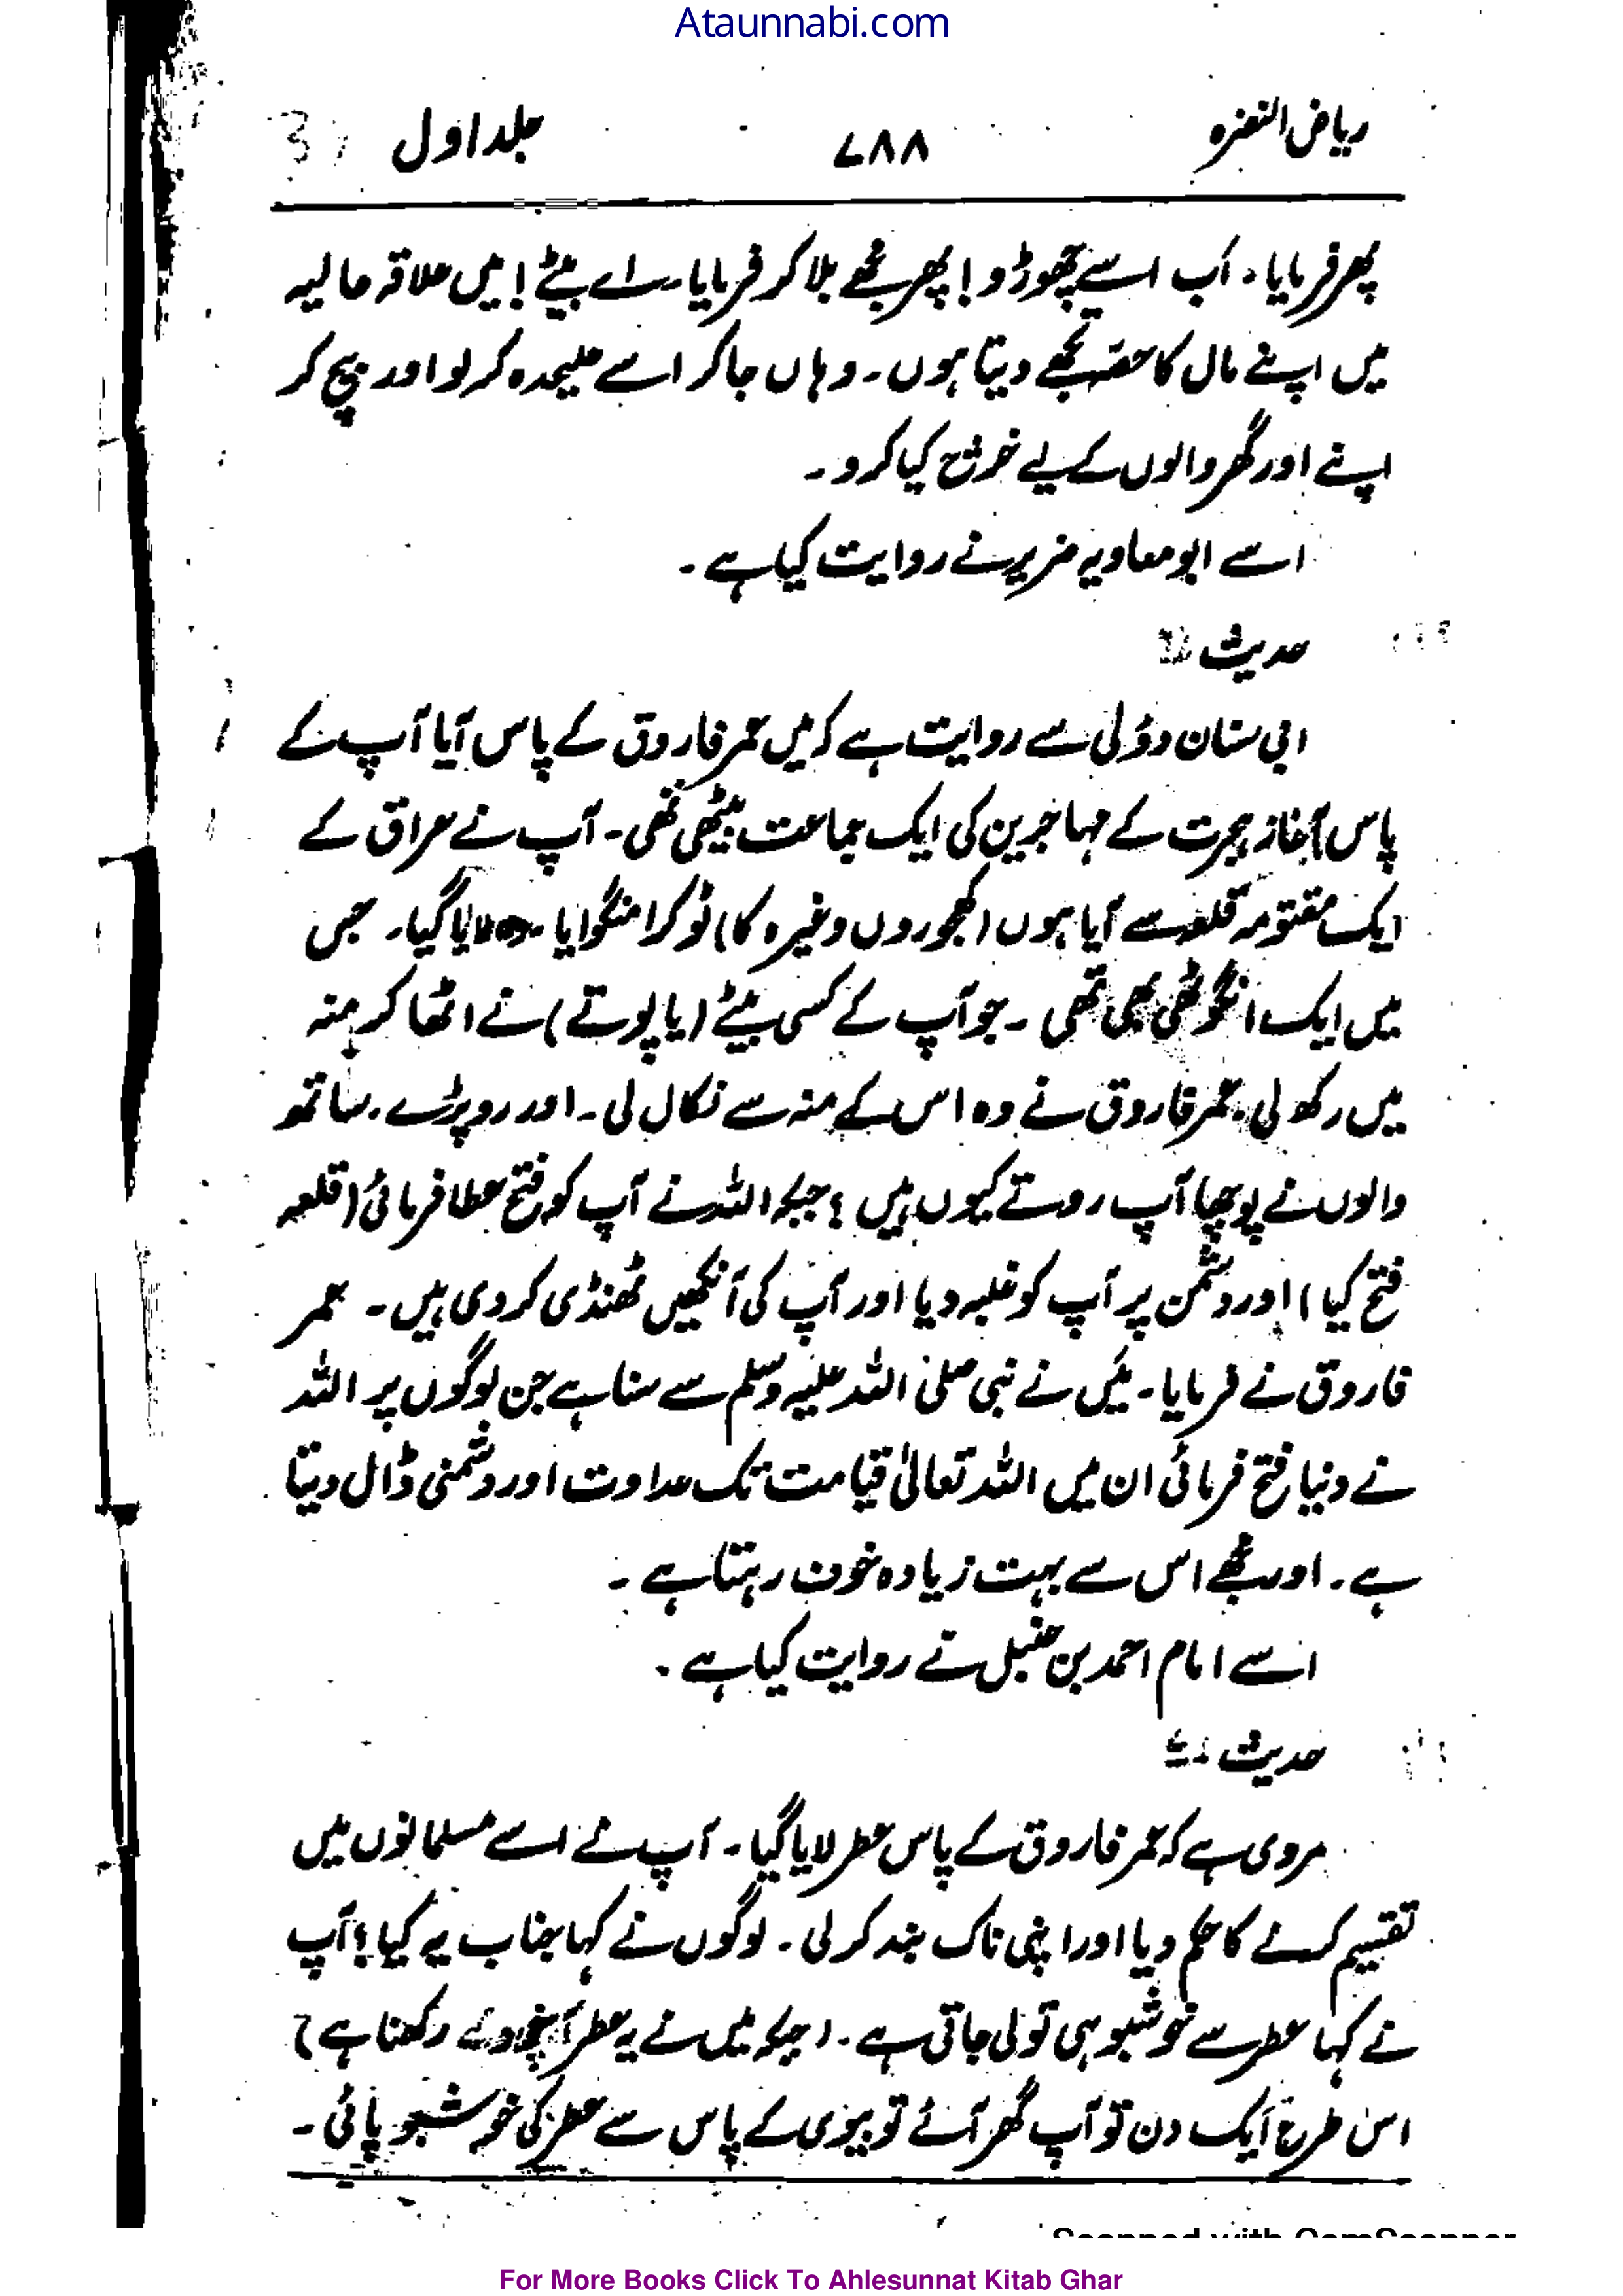 Ataunnabi.com
ریاض النضرہ ۷۸۸ جلد اول
پھر فرمایا۔ اب اسے چھوڑ دو! پھر مجھے بلا کر فرمایا۔ اے بیٹے! میں علاقہ عالیہ
میں اپنے مال کا حصہ تجھے دیتا ہوں۔ وہاں جا کر اسے علیحدہ کر لو اور بیچ کر
اپنے اور گھر والوں کے لیے خرچ کیا کرو۔
اسے ابو معاویہ ضریر نے روایت کیا ہے۔
حدیث
ابی سنان دؤلی سے روایت ہے کہ میں عمر فاروق کے پاس آیا آپ کے
پاس آغاز ہجرت کے مہاجرین کی ایک جماعت بیٹھی تھی۔ آپ نے عراق کے
ایک مفتوحہ قلعہ سے آیا ہوں (کھجوروں وغیرہ کا) ٹوکرا منگوایا۔ وہ لایا گیا۔ جس
میں ایک انگوٹھی بھی تھی۔ جو آپ کے کسی بیٹے (یا پوتے) نے اٹھا کر منہ
میں رکھ لی۔ عمر فاروق نے وہ اس کے منہ سے نکال لی۔ اور رو پڑے۔ ساتھ
والوں نے پوچھا آپ روتے کیوں ہیں؟ جبکہ اللہ نے آپ کو فتح عطا فرمائی (قلعہ
فتح کیا) اور دشمن پر آپ کو غلبہ دیا اور آپ کی آنکھیں ٹھنڈی کر دی ہیں۔ عمر
فاروق نے فرمایا۔ میں نے نبی صلی اللہ علیہ وسلم سے سنا ہے جن لوگوں پر اللہ
نے دنیا فتح فرمائی ان میں اللہ تعالیٰ قیامت تک عداوت اور دشمنی ڈال دیتا
ہے۔ اور مجھے اس سے بہت زیادہ خوف رہتا ہے۔
اسے امام احمد بن حنبل نے روایت کیا ہے۔
حدیث
مروی ہے کہ عمر فاروق کے پاس عطر لایا گیا۔ آپ نے اسے مسلمانوں میں
تقسیم کرنے کا حکم دیا اور اپنی ناک بند کر لی۔ لوگوں نے کہا جناب یہ کیا؟ آپ
نے کہا عطر سے خوشبو ہی تو لی جاتی ہے۔ (جبکہ میں نے یہ عطر رکھنا ہے)
اس طرح ایک دن تو آپ گھر آئے تو بیوی کے پاس سے عطر کی خوشبو پائی۔
For More Books Click To Ahlesunnat Kitab Ghar